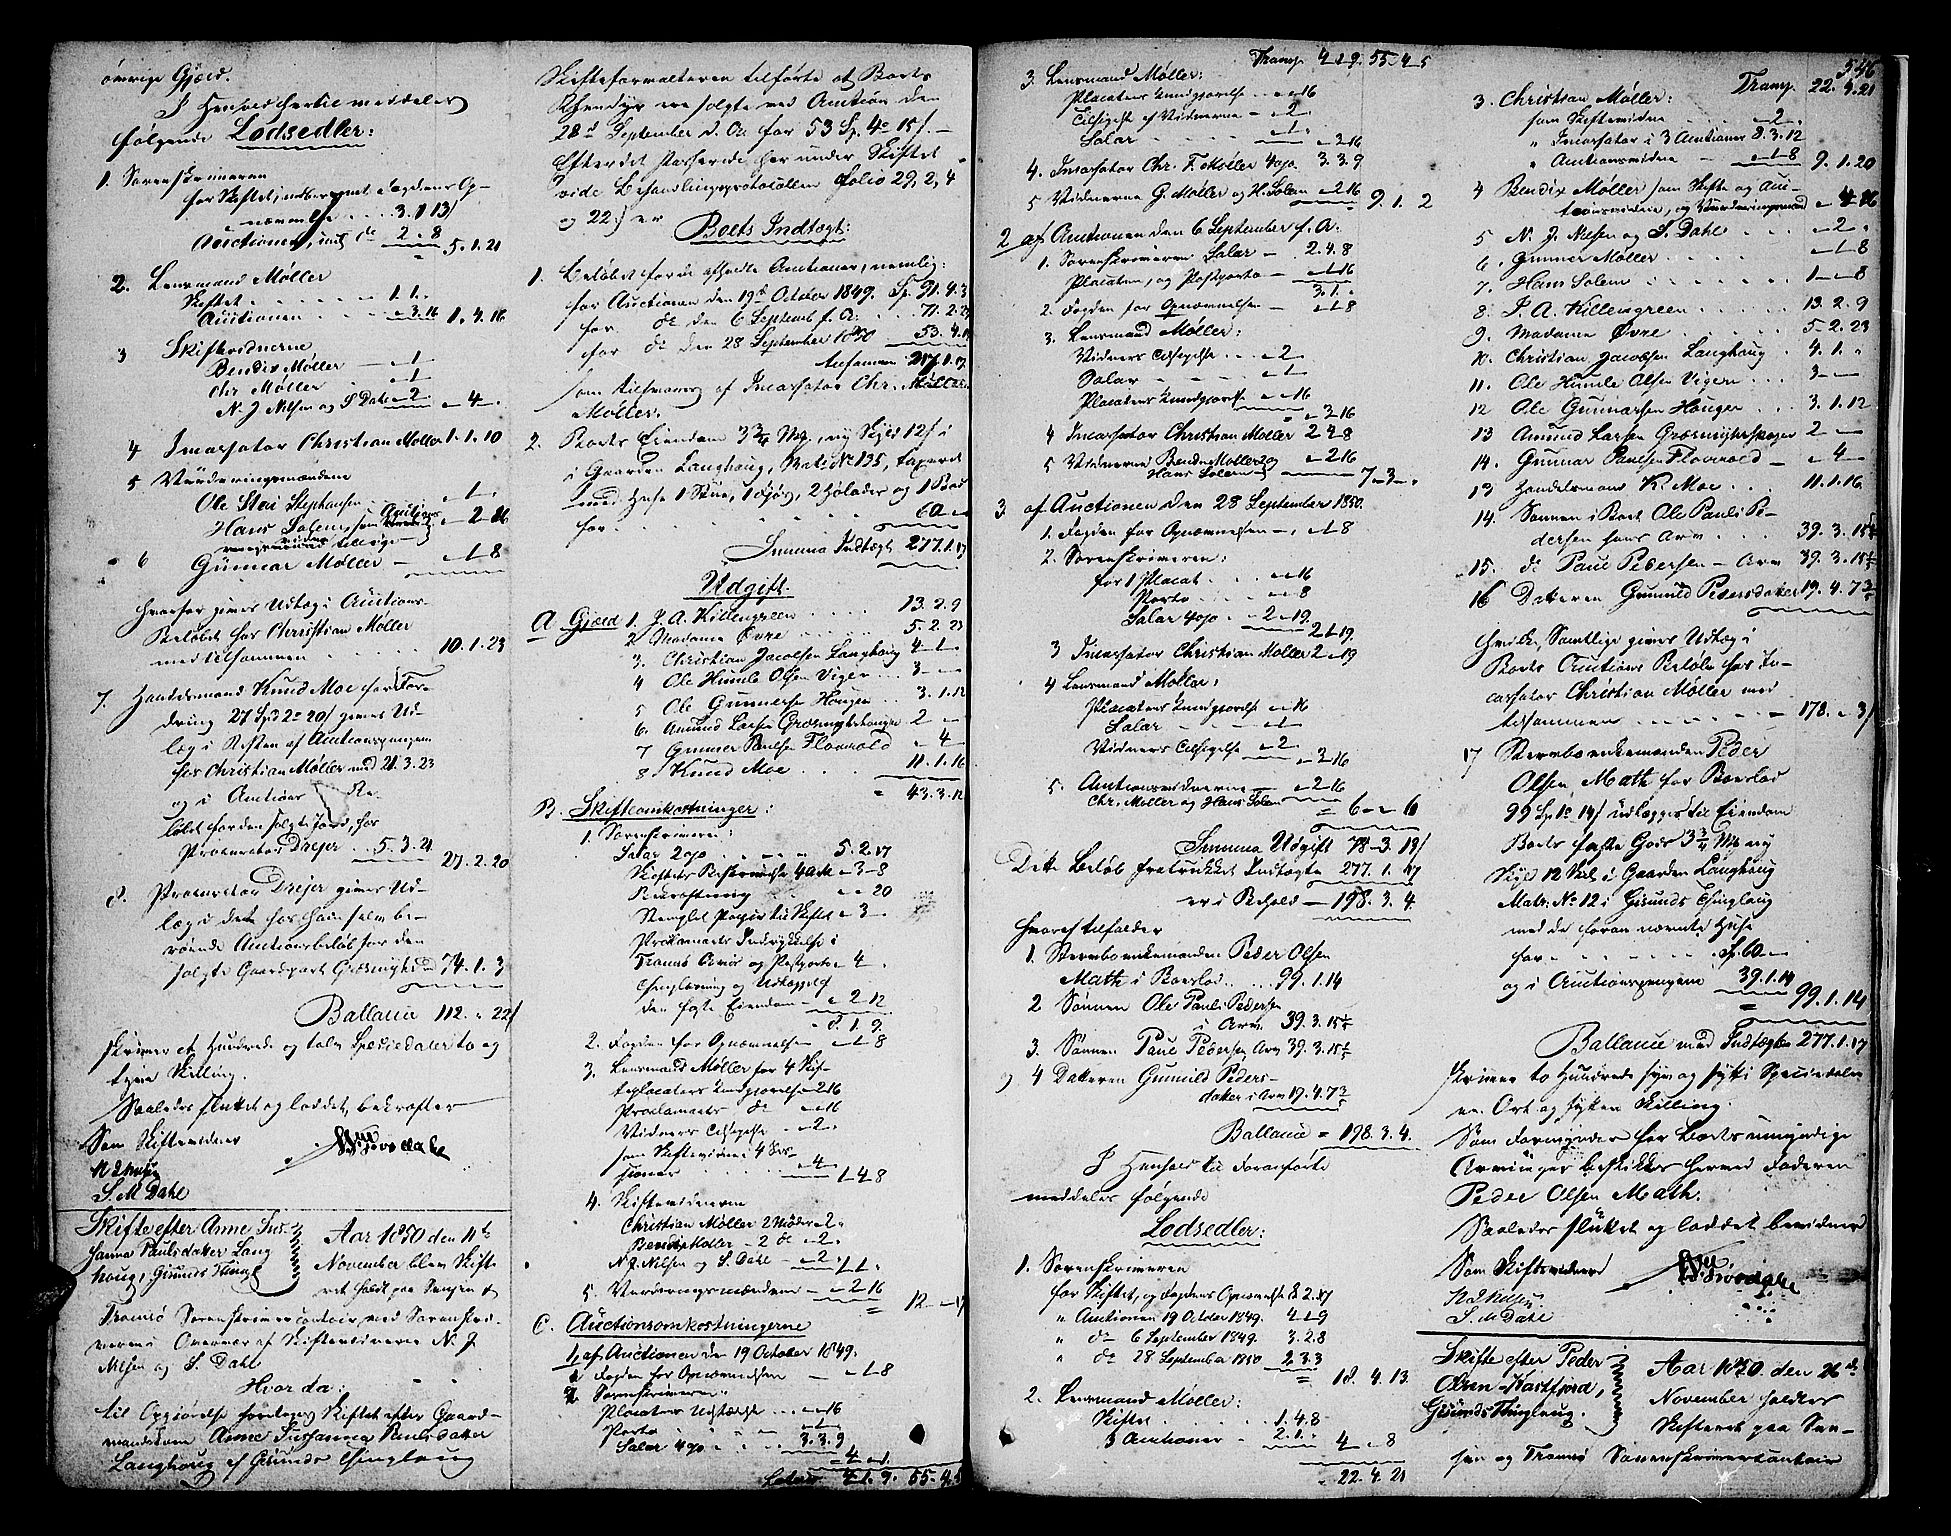 øvrige Gjæld.
I Henhold hertil meddeles
følgende Lodsedler:
1. Sorenskriveren
for Skiftet, indberegnet Fogdens Op-
nævnelse . . . 3. 1. 13/
Auctionen, incl. do 2 - 8
5. 1. 21
2. Lensmand Møller
Skiftet . . . 1. 1.
Auctionen . . . - 3. 16 1. 4. 16
3 Skiftevidnerne
Bendix Møller - 1
Chr Møller - 1
N. J. Nilsen og S Dahl - 2 - 4 -
4 Incassator Christian Møller 1. 1. 10
5 Vurderingsmændene
Ole Stei Stephansen - 1
Hans Solem, som Auctions-
vidne tillige - 2 16
6 Gunnar Møller - 1 8
hvorfor gives Udlæg i Auctions-
Beløbet hos Christian Møller
med tilsammen . . . 10. 1. 23
7. Handelsmand Knud Moe for For-
dring 27 Spd 2 20/ gives Ud-
læg i Resten af Auctionspengene
hos Christian Møller med 21. 3. 23
og i Auctions
løbet for den solgte Jord, hos
Procurator Drejer . . 5. 3. 21
27. 2. 20
8. Procurator Drejer gives Ud-
læg i det hos ham selv be-
roende Auctionsbeløb for den
solgte Gaardpart Græsmyr 74. 1. 3
Ballance 112. " 22/
skriver et Hundrede og tolv Speciedaler to og
tyve Skilling.
Saaledes sluttet og loddet, bekræfter
Som Skiftevidner
N J Nilsen
S. M Dahl
Skifte efter Anne Sus-
hanna Paulsdatter Lang
houg, Gisunds Thingl
Aar 1850 den 11te
November blev Skifte
ret holdt paa Senjen &
Tromsø Sorenskrivercontoir, med Sorenskri-
veren i Overvær af Skiftevidnerne N. J.
Nilsen og S. Dahl
Hvor da:
til Opgjørelse foretoges Skiftet efter Gaard-
mandskone Anne Sushanna Paulsdatter
Langhoug af Gisunds Thinglaug
Skifteforvalteren tilførte at Boets
Effecter ere solgte ved Auction den
28de September d. A. for 53 Sp. 4 15/. -
Efter det Passerede her under Skiftet
vide Behandlingsprotocollen Folio 29, 2, 4
og 22/ er
Boets Indtægt:
1. Beløbet for de afholdte Auctioner, nemlig:
for Auctionen den 19de October 1849. Sp. 91. 4. 3
for do den 6 Septemb f. A: . . . 71. 2.
for do den 28 September 1850 53. 4. 15
tilsammen 217. 1. 17
som tilsvares af Incassator Chr. Møller
Møller.
2. Boets Eiendom 3 3/4 Mg, ny Skyld 12/ i
i Gaarden Langhoug, Matr No 135, taxeret
med Huse 1 Stue, 1 Sjøeb, 2 Hølader og 1 Bod
for . . . 60 -
Summa Indtægt 277. 1. 17
Udgift.
A Gjæld 1. J. A. Killengreen . . . 13. 2. 9
2 Madame Øvre . . . 5. 2. 23
3. Christian Jacobsen Langhoug 4 1
4 Ole Humle Olsen Vigen . . 3 -
5 Ole Gunnersen Hougen . . 3. 1. 12
6. Amund Larsen Græsmyrskogen 2 -
7 Gunner Paulsen Flovvold - 4
8 Knud Moe . . . 11. 1. 16
43. 3. 12
B. Skifteomkostninger:
1. Sorenskriveren:
Salar 2 pCt . . . 5. 2. 17
Skiftets Beskrivelse 4 Ark - 3 - 8
- 20
Stemplet Papir til Skiftet - 3
Proklamaets Indrykkelse i
Tromsø Avis og Postporto - 4
Thinglæsning og Udlægget
den faste Eiendom - 2 12
8. 1. 9.
2. Fogden for Opnævnelsen - 1 8
3. Lensmand Møller for 4 Skif-
teplacaters Kundgjørelse - 2 16
Proclamaets do - 16
Vidners Tilsigelse - 2
som Skiftevidne i 4 Ses-
sioner - 4 1 4 8
4. Skiftevidnerne
Christian Møller 2 Møder - 2
Bendix Møller - 2 do - 2
N. J. Nilsen og S. Dahl - 2 1 1
5. Vurderingsmændene - 2 16
12 - 17
C. Auctionsomkostningerne
1, af Auctionen den 19 October 1849.
1 Fogden for Opnævnelsen - 1 8
2. Sorenskriveren
Placatens Udstedelse - 16
Porto - 1
Salar 4 pCt . . . 3. 3. 9
4 1
Lateris 4 1. 9. 55. 4. 5
Transp. 4. 1. 9. 55. 4. 5
3. Lensmand Møller:
Placatens Kundgjørelse - 16
Tilsigelse af Vidnerne - 2
Salar . . . - 1
- 3 16
4. Incassator Chr. F. Møller 4 pCt. 3. 3. 9
5 Vidnerne G. Møller og H. Solem - 2 16 9. 1. 2
2 af Auctionen den 6 September f. A.
1. Sorenskriveren Salar - 2. 4. 8
Placaten, og Postporto - 1 16
3. 1. -
2. Fogden for Opnævnelsen - - 1 8
3. Lensmand Møller:
Vidners Tilsigelse . . - 2
Salar . . . - 1
Placatens Kundgjørelse - - 16
- 3 16
4 Incassator Christian Møller 2 4 8
5 Vidnerne Bendix Møller og
Hans Solem - 2 16 7. 3 -
3 af Auctionen den 28 September 1850.
1. Fogden for Opnævnelsen - - 1 8
2. Sorenskriveren:
for 1 Placat . . . - 16
Porto . . . - 8
Salar 4 pCt . . - 2 - 19
2 1 19.
3 Incassator Christian Møller 2 - 19
4 Lensmand Møller:
Placatens Kundgjørelse - - 16
Salar . . . - 1
Vidners Tilsigelse - 2 - 3 16
5. Auctionsvidnerne - - 2 16
Chr. Møller og Hans Solem
6 - 6
Summa Udgift 78 - 3. 13/
Dette Beløb fratrukket Indtægten 277. 1. 17
er i Behold - 198. 3. 4.
hvoraf tilfalder
1. Stervboenkemanden Peder Olsen
Math i Boeslod . . . 99. 1. 14
2 Sønnen Ole Pauli Pedersen
i Arv 39. 3. 15
3. Sønnen Paul Pedersen, Arv 39. 3. 15
og 4 Datteren Gunnild Peders-
datter i Arv 19. 4. 7
Ballance = 198. 3. 4.
I Henhold til Foranførte
meddeles følgende
Lodsedler:
1. Sorenskriveren
for Skiftet, og Fogdens Opnævnelse 8 2. 17
" Auctionen 19 October 1849. 4 1 9
" do 6 September 1849. 3. 2. 8
" do 28 September 1850 2 3. 3
18. 4. 13.
2. Lensmand Møller:
Skiftet . . . 1. 4. 8
3 Auctioner - 2. 1. 4 - 8
22. 4. 21
546
Transp. 22. 4. 21
3. Christian Møller:
som Skiftevidne - 2 .
" Incassator i 3 Auctioner 8. 3. 12
" Auctionsvidne - - 1 8 9. 1. 20
4 Bendix Møller som Skifte og Auc-
tionsvidne, og Vurderingsmand - 4 16
5 N. J. Nilsen og S. Dahl . . . - 2 .
6. Gunner Møller . . . - 1 8
7. Hans Solem . . . 1 - 8
8. J. A. Killengreen . . . 13. 2. 9
9. Madame Øvre . . . 5. 2. 23
10. Christian Jacobsen Langhoug . 4. 1. "
11. Ole Humle Olsen Vigen . . . 3 -
12 Ole Gunnarsen Hougen . . . 3. 1. 12
13 Amund Larsen Græsmyrskogen 2 -
14. Gunnar Paulsen Flovvold - - 4 -
13 Handelsmand K. Moe . . . 11. 1. 16
14. Sønnen i Boet Ole Pauli Pe-
dersen hans Arv . . . 39. 3. 15
15. do Paul Pedersen - Arv 39. 3. 15
16 Datteren Gunnild Pedersdatter 19. 4. 7
hvilke Samtlige gives Udlæg i
Boets Auctions Beløb hos In-
cassator Christian Møller med
tilsammen . . . 178. " 3/
17 Stervboenkemanden Peder
Olsen Math for Boeslod
99 Sp 1 14/ udlægges til Eiendom
Boets faste Gods 3 3/4 Mg ny
Skyld 12 Skil. i Gaarden Langhoug
Matr: No 12 i Gisunds Thinglaug
med de foran nævnte Huse
for . . . Sp. 60 -
og i Auctionspengene 39. 1. 14
= 99. 1. 14
Ballance med Indtægten 277. 1. 17
skriver to Hundrede syv og sytti Speciedaler
een Ort og sytten Skilling.
Som Formynder for Boets umyndige
Arvinger beskikkes herved Faderen
Peder Olsen Math.
Saaledes sluttet og loddet bevidner
Som Skiftevidner
N J Nilsen
S. M Dahl
Skifte efter Peder
Olsen Kastfjord,
Gisunds Thinglaug.
Aar 1850 den 26de
November holdtes
Skifteret paa Sen-
jen og Tromsø Sorenskrivercontoir